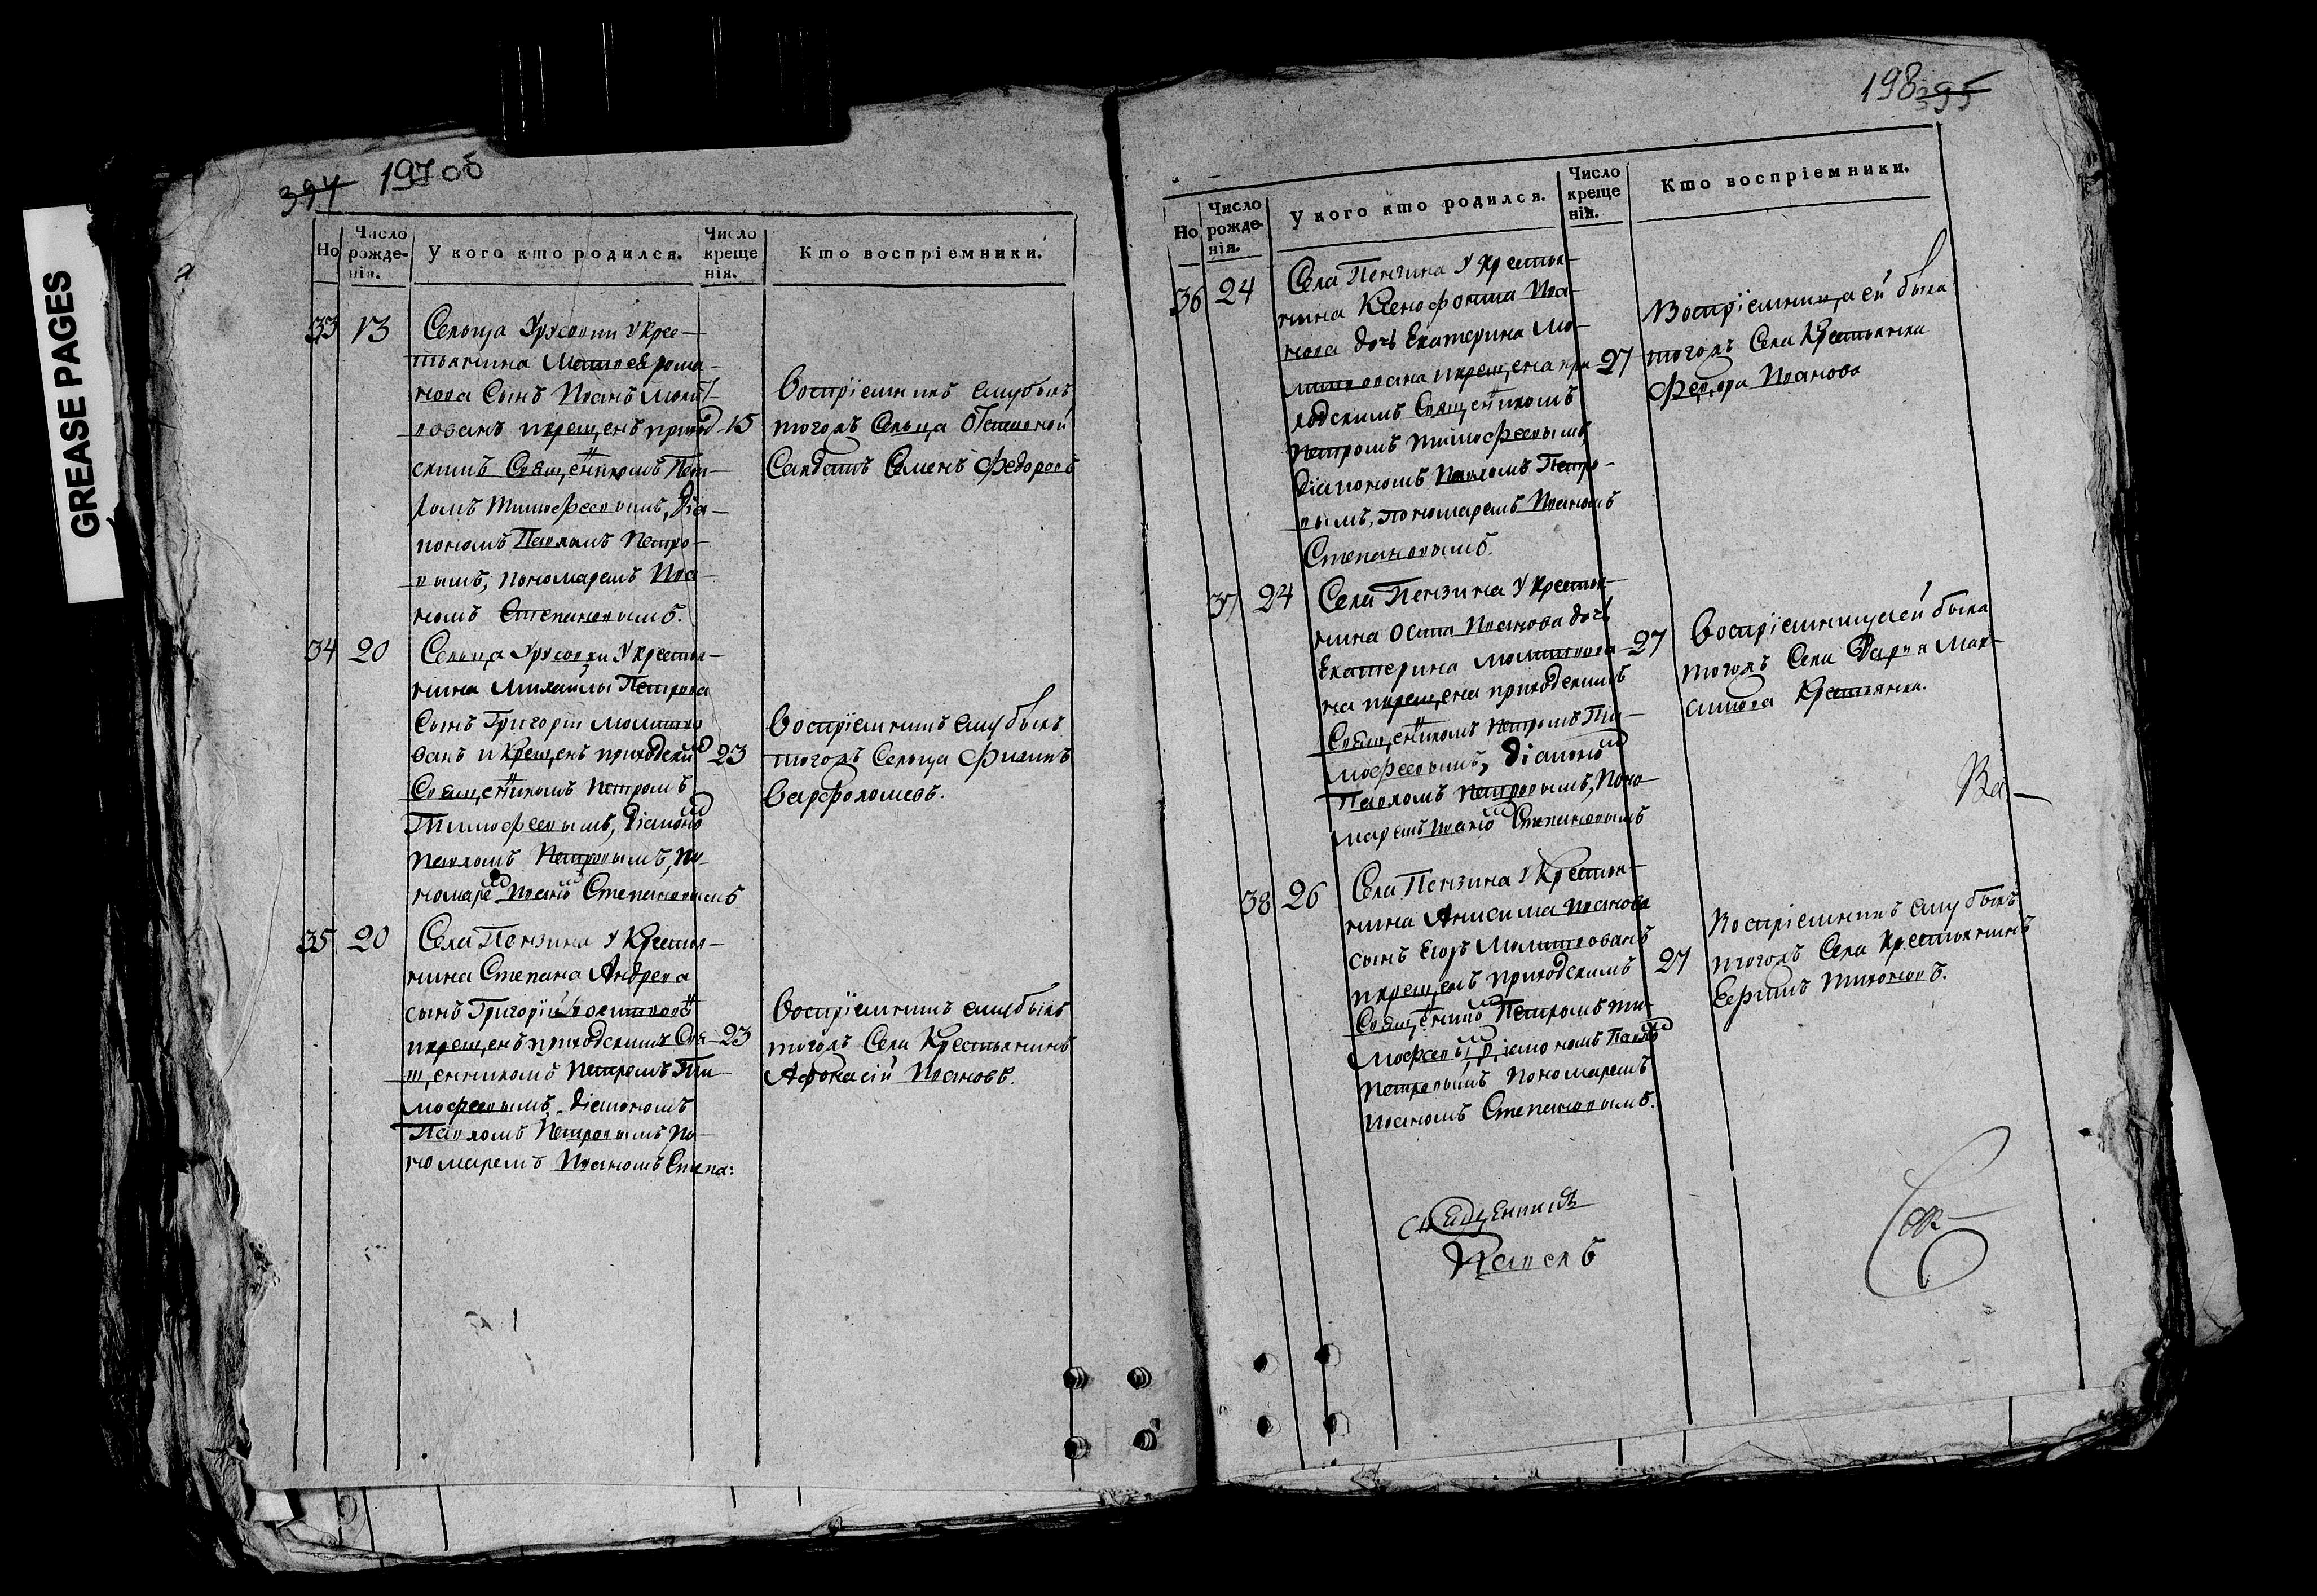 GREASE PAGES
394 197 об
Но
Число рожде- нія.
У кого кто родился.
Число креще нія.
Кто воспріемники.
33 13 Сельца Урусовки у кре-
стьянина Матвея рома-
нова сынъ Иванъ молит-
вованъ икрещенъ приход 15
скимъ Священникомъ Пет-
ромъ Тимофеевымъ, діа-
кономъ Павломъ Петро-
вымъ, пономаремъ Ива-
номъ Степановымъ.
Воспріемникъ емубылъ
тогожъ Сельца Отставной
Салдатъ Семенъ Федоровъ
34 20 Сельца Урусовки у крестья-
нина Михайлы Петрова
сынъ Григорій молитво
ванъ и крещенъ приходским 23
Священникомъ Петромъ
Тимофеевымъ, діаконом
Павломъ Петровымъ, по-
номарем Иваном Степановымъ
Воспріемникъ ему былъ
тогожъ Сельца Филипъ
Варфоломеевъ.
35 20 Села Пензина у крестья-
нина Степана Андреева
сынъ Григорій
икрещенъ приходскимъ Свя- 23
щенникомъ Петромъ Ти-
мофеевымъ діакономъ
Павломъ Петровымъ по-
номаремъ Иваномъ Степа:
Воспріемникъ ему былъ
тогожъ Села Крестьянинъ
Афонасій Ивановъ.
198 395
Но
Число рожде- нія.
У кого кто родился.
Число креще нія.
Кто воспріемники.
36 24 Села Пензина у крестья-
нина Ксенофонта Ива-
нова дочь Екатерина мо-
литвована икрещена при 27
ходскимъ Священникомъ
Петромъ Тимофеевымъ,
діакономъ Павломъ Петро-
вымъ, пономаремъ Иваномъ
Степановымъ.
Воспріемница ей была
тогожъ Села Крестьянка
Федора Иванова
37 24 Села Пензина у крестья-
нина Осипа Иванова дочь
Екатерина молитвова 27
на икрещена приходскимъ
Священникомъ Петромъ Ти-
мофеевымъ, діаконом
Павломъ Петровымъ, поно-
маремъ Иваном Степановымъ
Воспріемницаей была
тогожъ Села Дарья Мак-
симова Крестьянка.
38 26 Села Пензина у Крестья-
нина Анисима Иванова
сынъ Егоръ Молитвованъ
икрещенъ приходскимъ 27
Священником Петромъ Ти-
мофеевым діакономъ Павлом
Петровымъ пономаремъ
Иваномъ Степановымъ.
Воспріемникъ ему былъ
тогожъ Села Крестьянинъ
Ефимъ Тихоновъ.
Священникъ
Павелъ